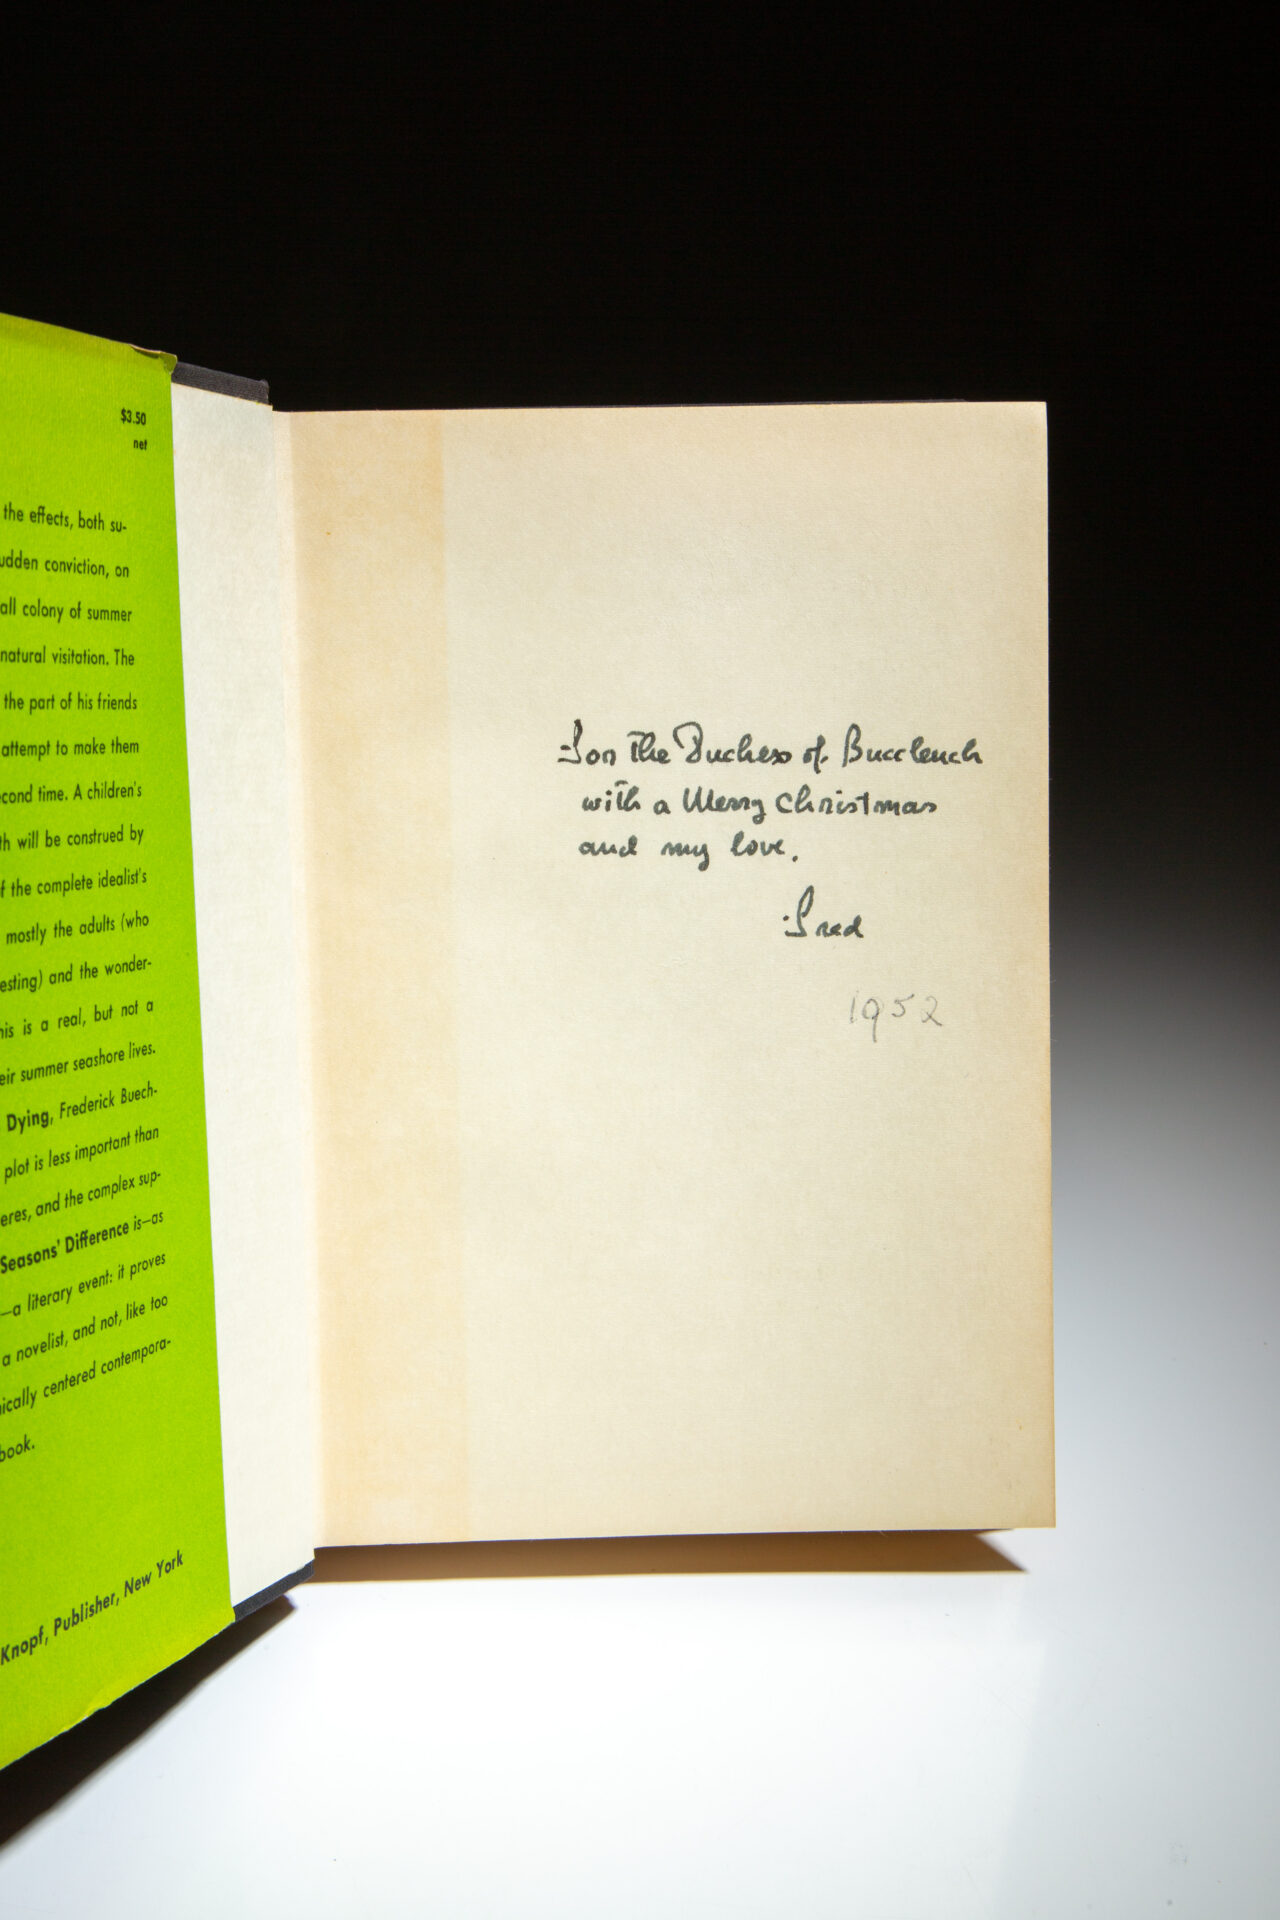 $3.50
net
the effects, both su-
udden conviction, on
all colony of summer
natural visitation. The
the part of his friends
attempt to make them
cond time. A children's
th will be construed by
f the complete idealist's
mostly the adults (who
esting) and the wonder-
his is a real, but not a
eir summer seashore lives.
Dying, Frederick Buech-
plot is less important than
eres, and the complex sup-
Seasons' Difference is—as
—a literary event: it proves
a novelist, and not, like too
ically centered contempora-
book.
Knopf, Publisher, New York
For the Duchess of Buccleuch
with a Merry Christmas
and my love.
Fred
1952